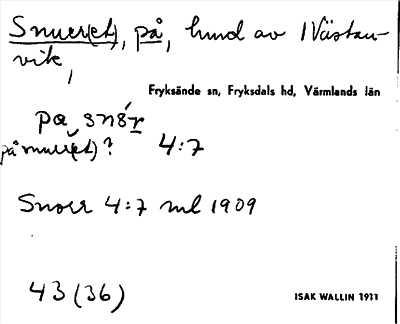 Snuer(et), på, hmd av Västan-
vik,
Fryksände sn, Fryksdals hd, Värmlands län
på snör
på snuer(et)? 4:7
Snoer 4:7 ml 1909
43 (36)
ISAK WALLIN 1911